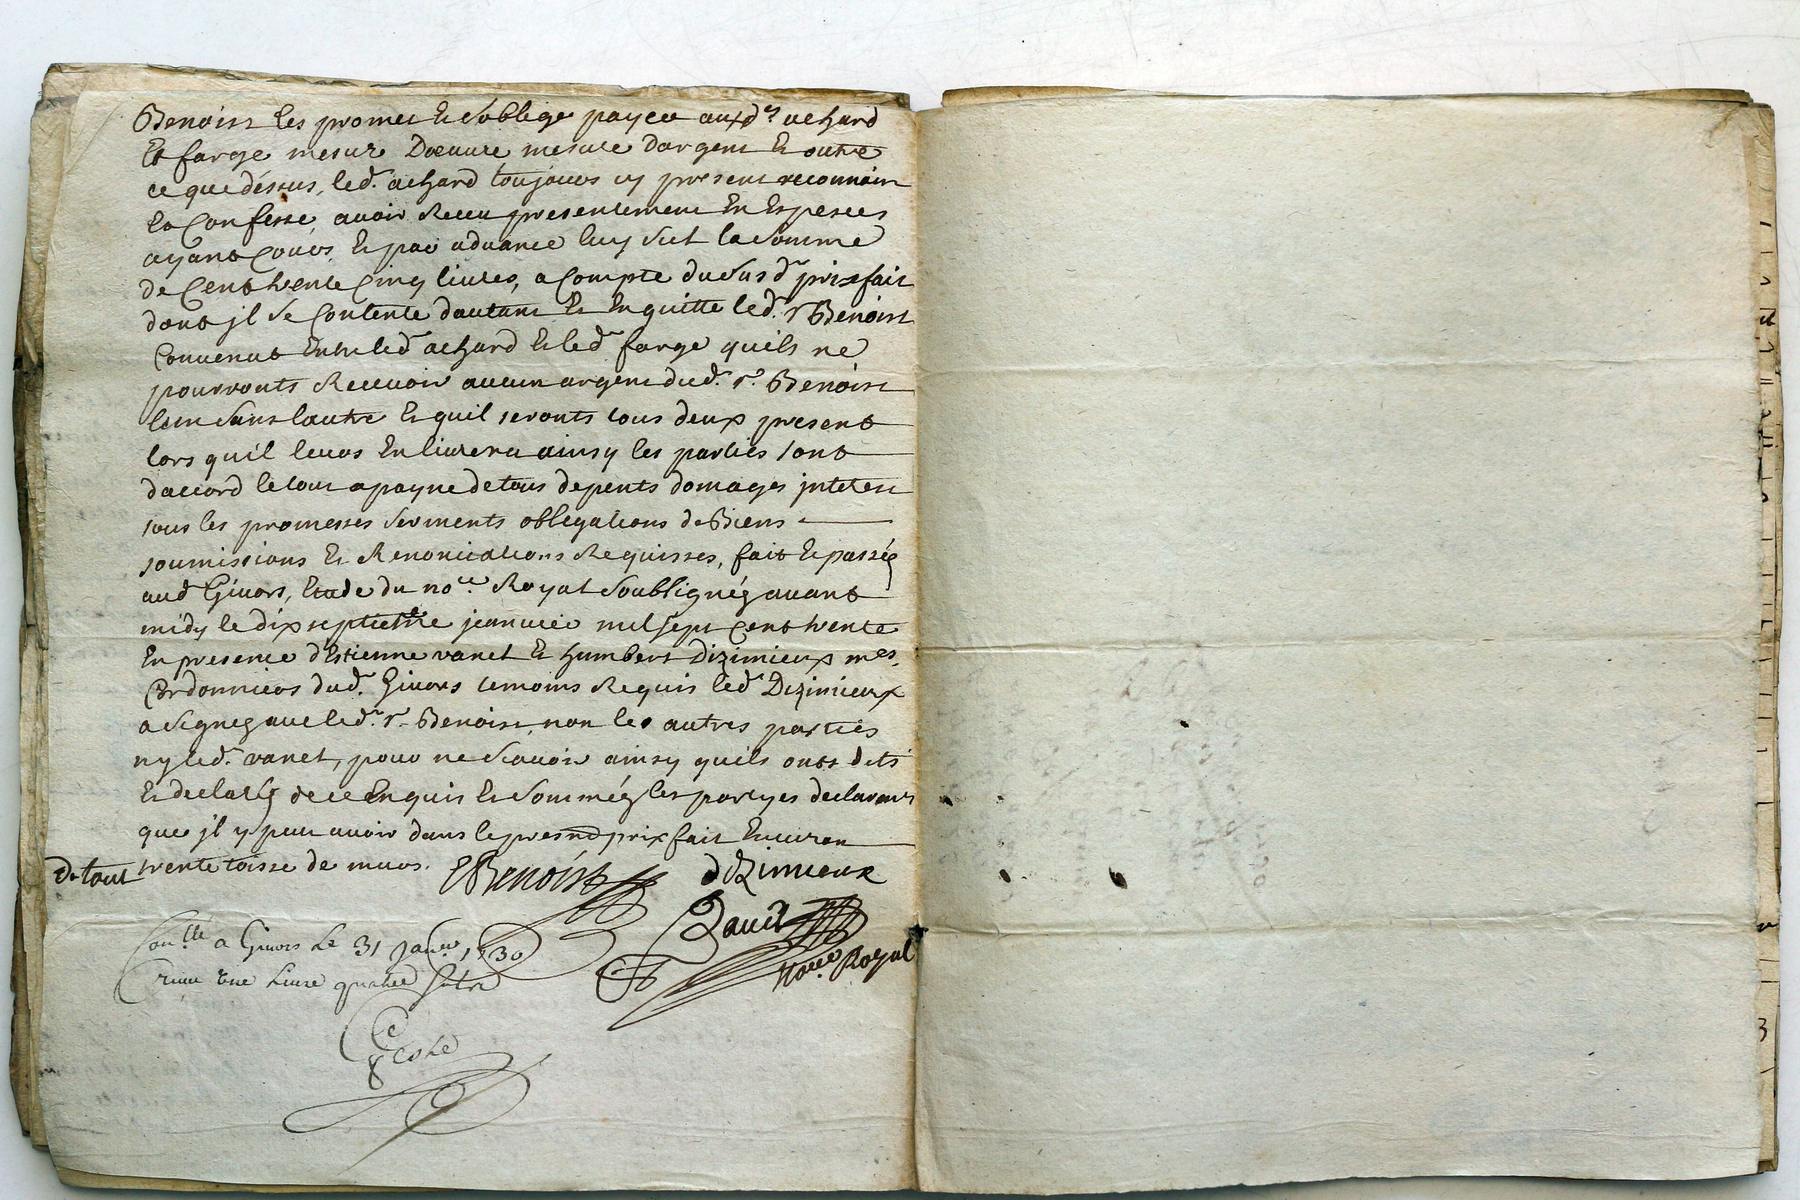 Benoist les promet & soblige payer auxd.rs achard
Et farge mesure Doeuvre mesure dargent & outre
ce que déssus, led. achard toujours cy present reconnoist
Et Confesse avoir Receu presentement En Espesces
ayant Cours, & par advance luy seul la somme
de Cent trente Cinq livres, a Compte du susd.r prixfait
dont jl se Contente dautant & En quitte led. sr Benoist
Convenut Entre led. achard & led. farge quils ne
pourronts Recevoir aucun argent dud. sr. Benoist
lun sans lautre & quil seronts tous deux present
lors quil leurs En livrera ainsy les parties sont
daccord le tout a payne de tous depents domages jnterest
sous les promesses serments obligations de Biens
soumissions & Renonciations Requisses, fait & passée
aud. Givors, Etude du no.re Royal Soubsignéz avant
midy le dix septieme jeanvier mil sept Cent trente
En presence d'Estienne vanel & humbert Dizimieux m.es
Cordonniers dud. Givors temoins Requis led. Dizimieux
a signez avec led. sr. Benoist, non les autres parties
ny led. vanel, pour ne scavoir ainsy quils onts dits
& declaréz de ce Enquis & sommez les partyes declarant
que jl y peut avoir dans le presnd prixfait Environ
De tout trente toisse de murs. Benoist dizimieux
David
No.re Royal
Con.lle a Givors Le 31 Janv. 1730
Receu une Livre quatre